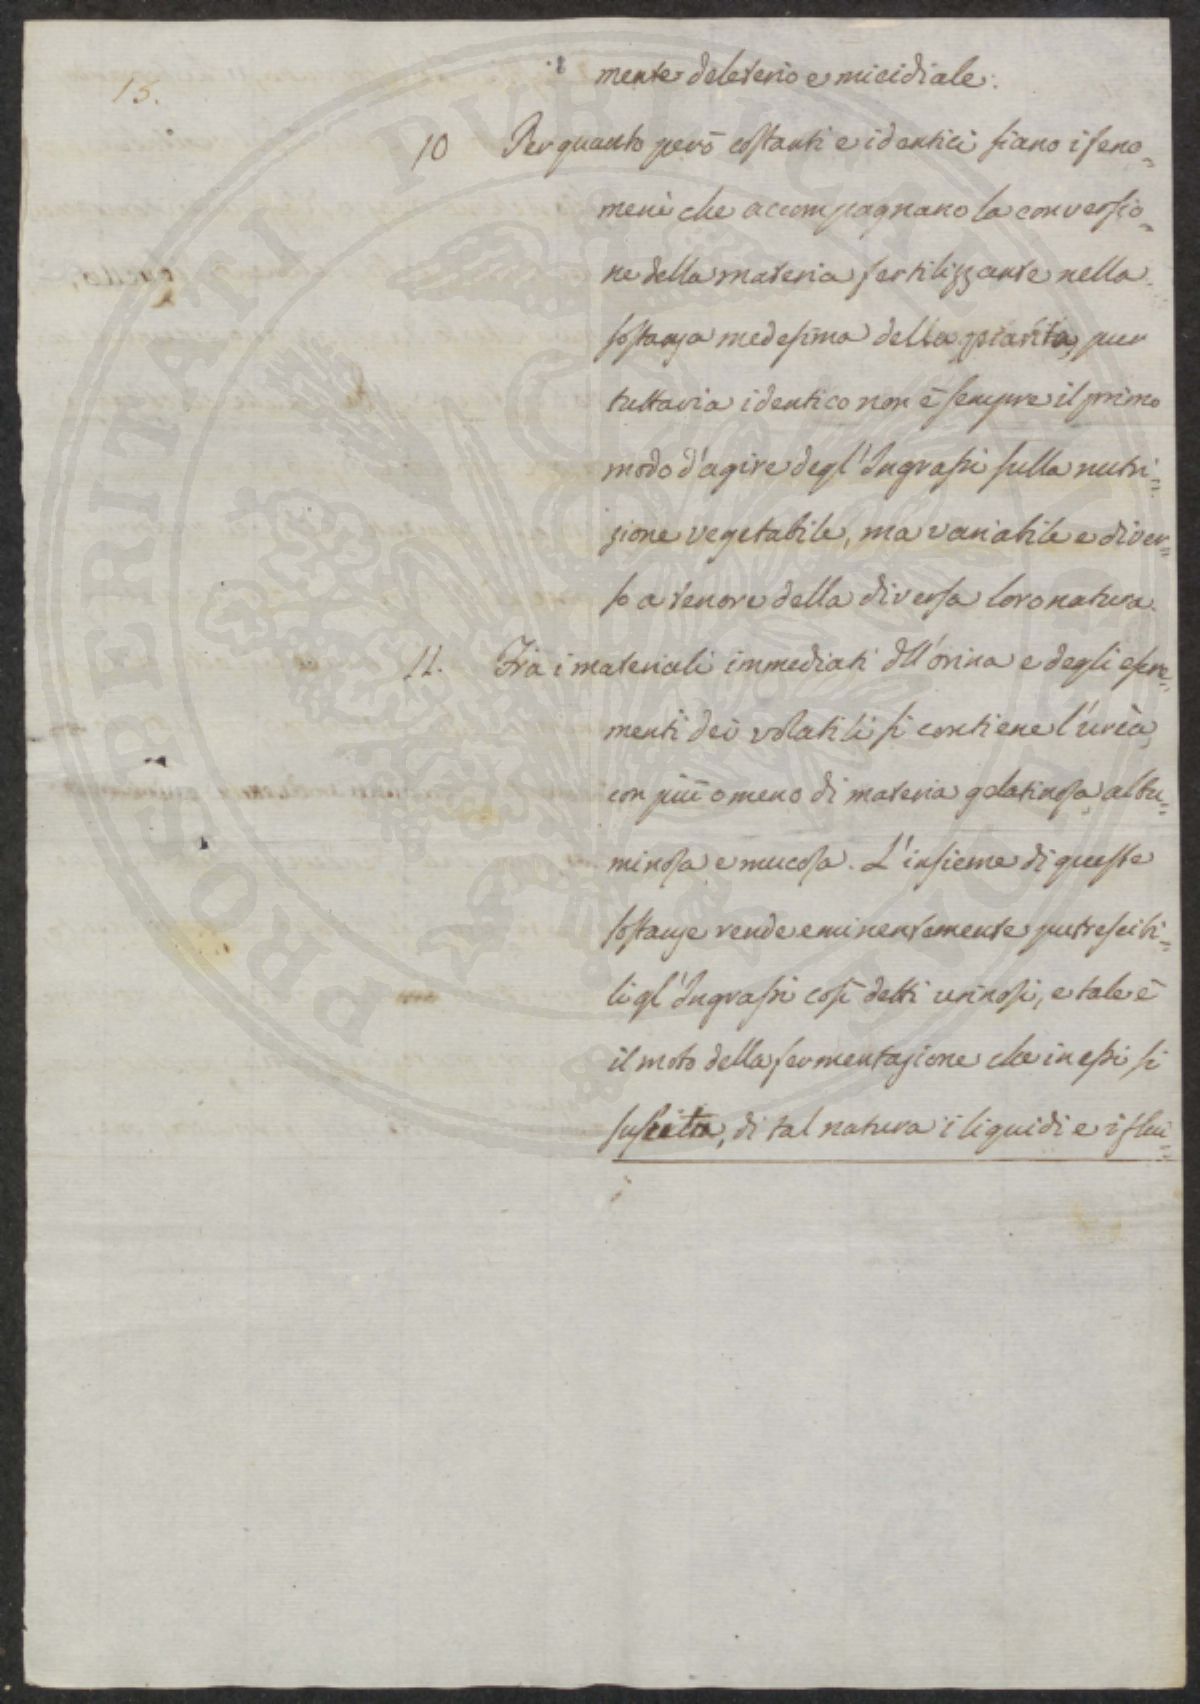 15.
mente deleterio e micidiale.
10 Per quanto però costanti e identici siano i feno=
meni che accompagnano la conversio=
ne della materia fertilizzante nella
sostanza medesima della pianta, pur
tuttavia identico non è sempre il primo
modo d'agire degl'Ingrassi sulla nutri=
zione vegetabile, ma variabile e diver=
so a tenore della diversa loro natura.
11. Fra i materiali immediati dell'orina e degli escre=
menti dei volatili si contiene l'urèa,
con più o meno di materia gelatinosa, albu=
minosa e mucosa. L'insieme di queste
sostanze rende eminentemente putrescibi=
li gl'Ingrassi così detti urinosi, e tale è
il moto della fermentazione che in essi si
suscita, di tal natura i liquidi e i flui=
PROSPERITATI PVBLICAE